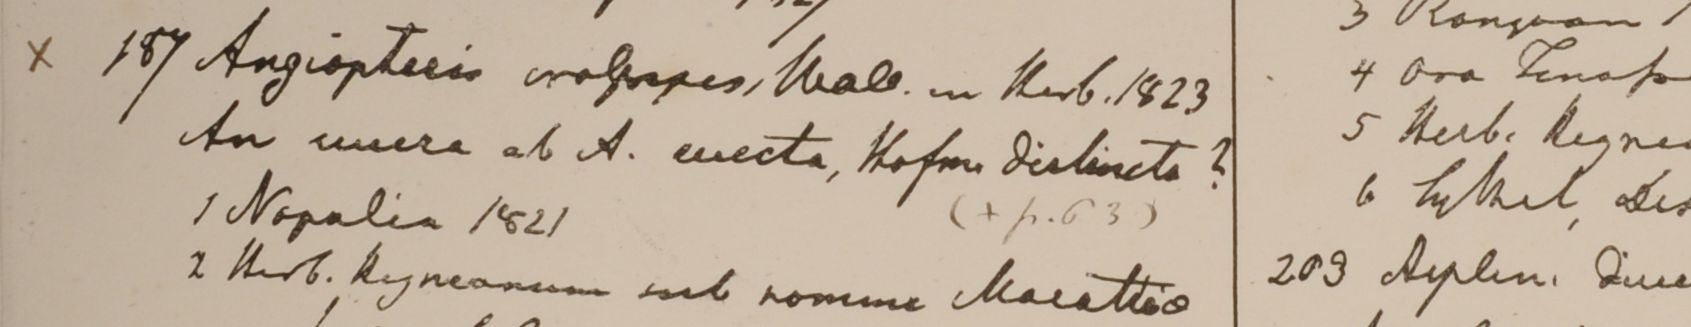 X 187 Angiopteris crassipes, Wall. in Herb. 1823
An vera ab A. evecta, Hofm. distincta?
1 Napalia 1821
(+ p. 63)
2 Herb. Heyneanum sub nomine Marattia
3
4 Ora Tenas
5 Herb. Heynea
6 Sylhet, Des
203 Asplen.